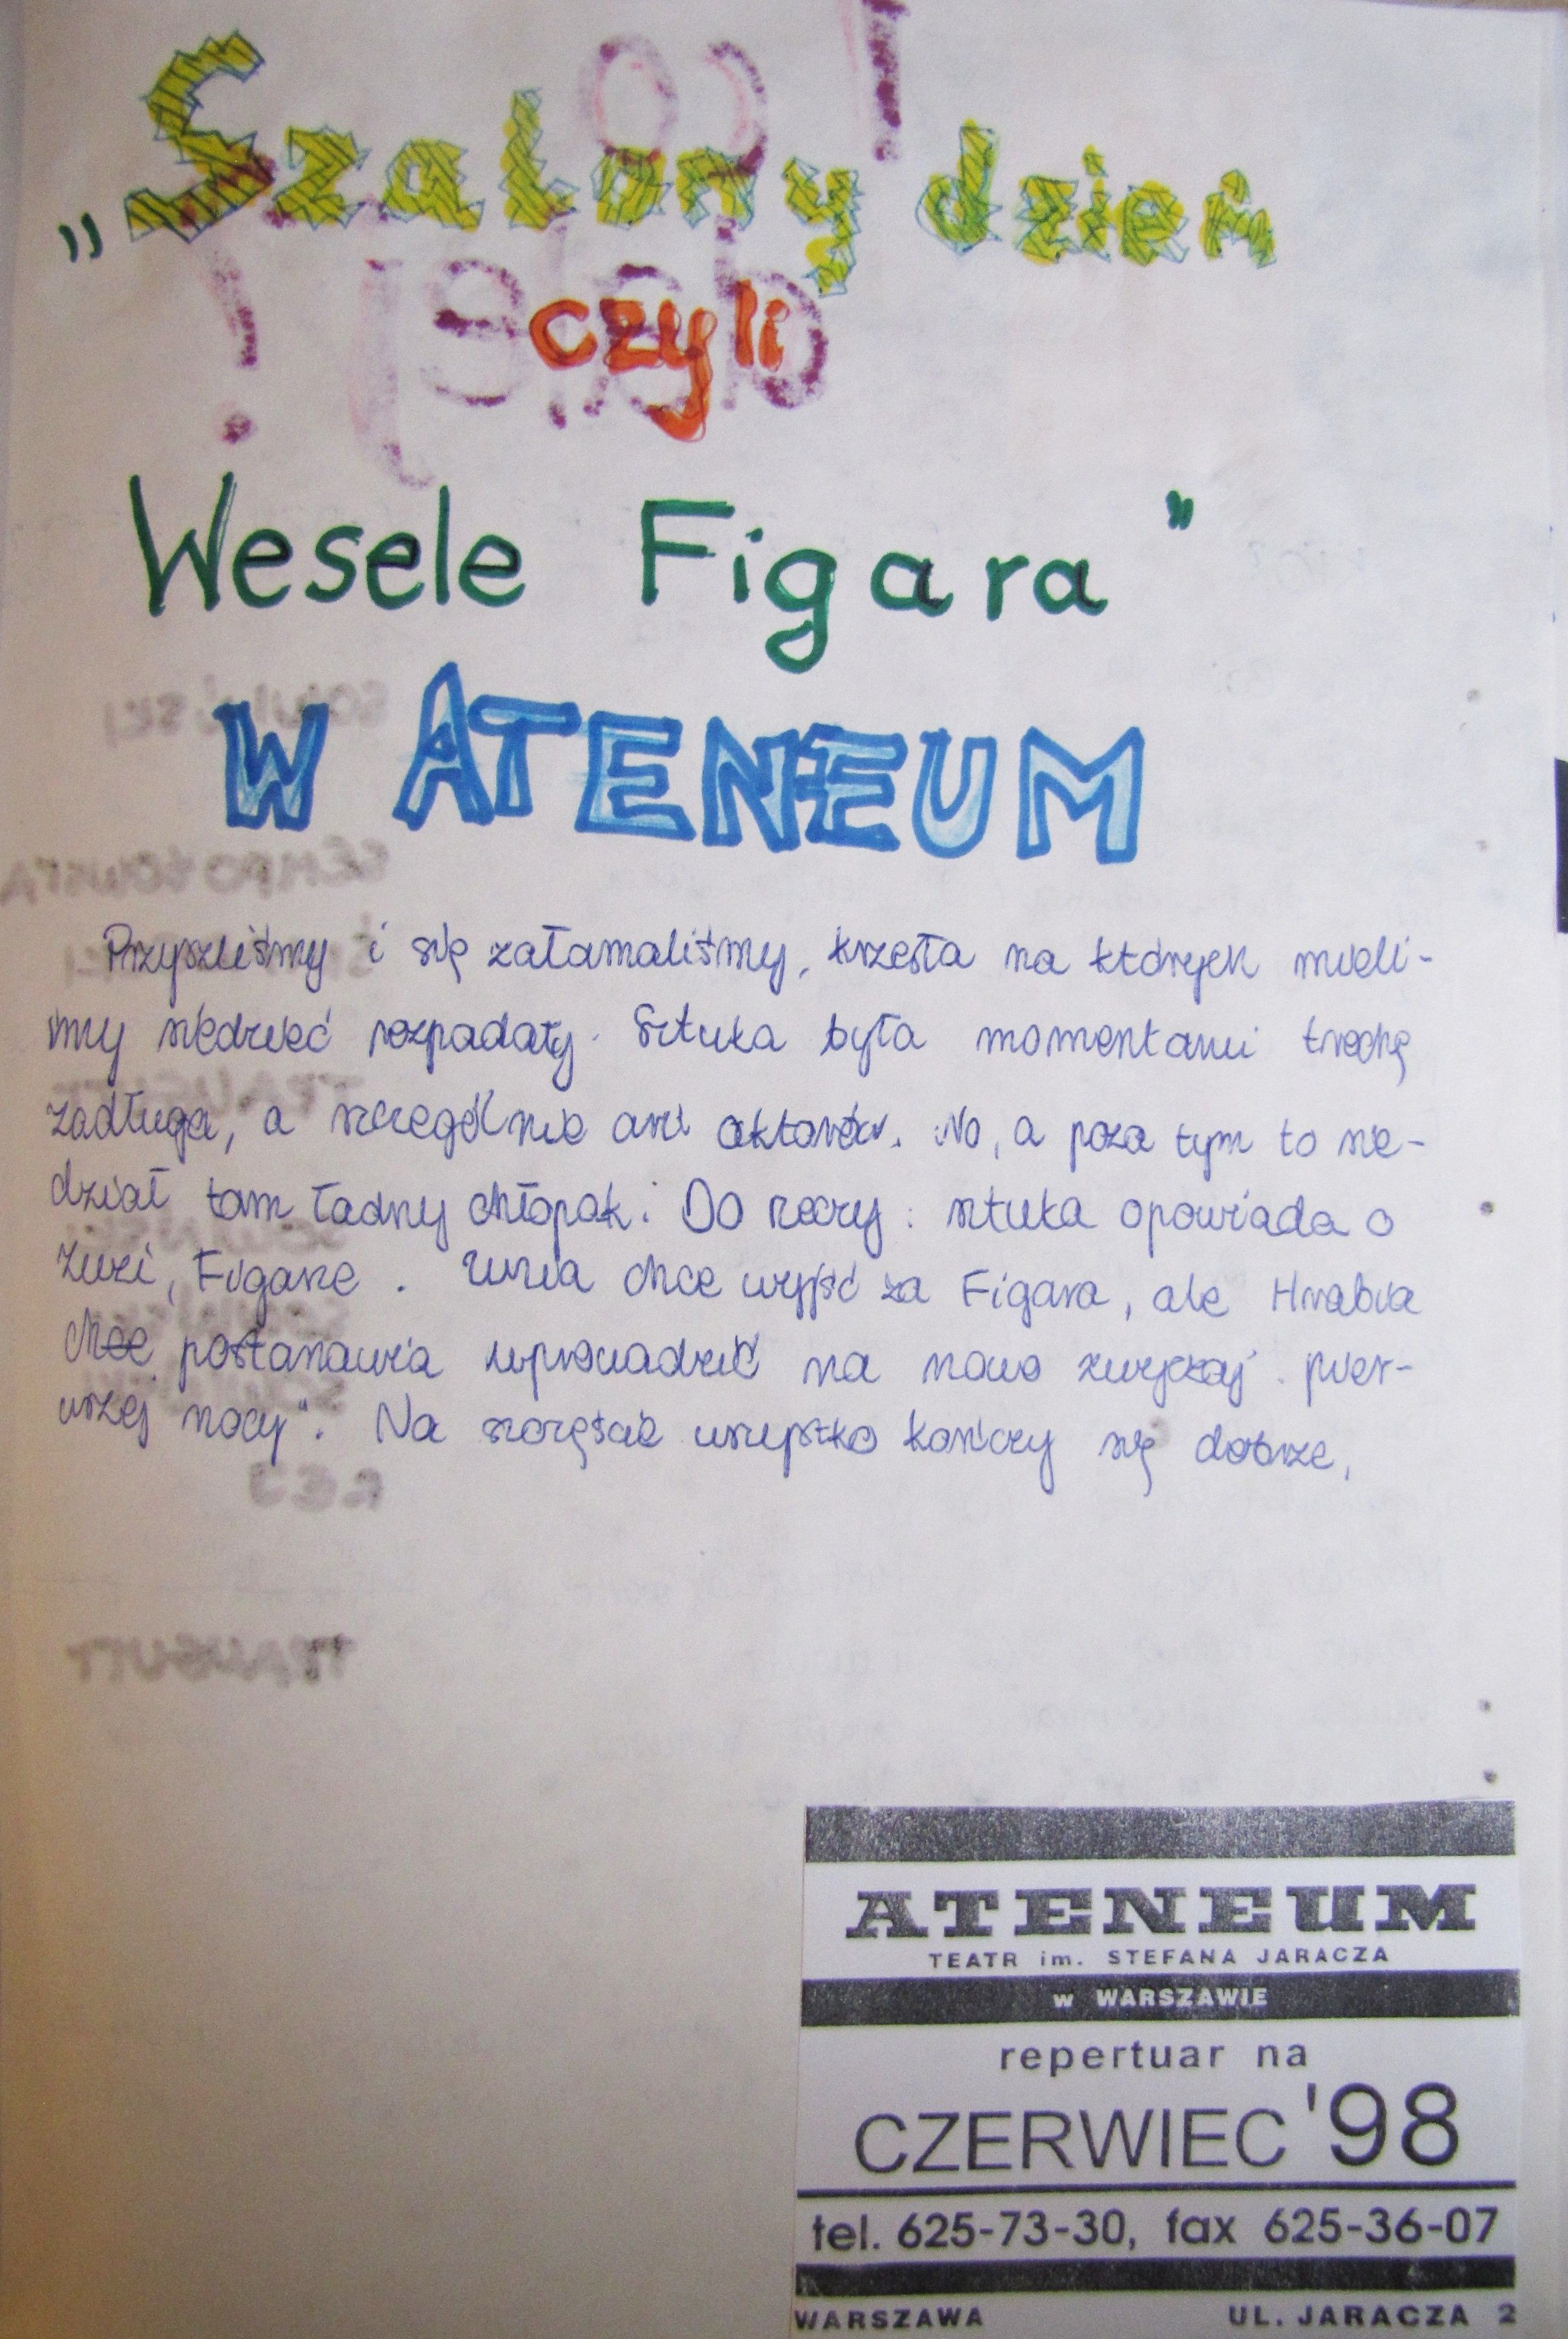 „Szalony dzień
czyli
Wesele Figara"
W ATENEUM
Przyszliśmy i się załamaliśmy, krzesła na których mieli-
śmy siedzieć rozpadały. Sztuka była momentami trochę
zadługa, a szczególnie aktorów. No, a poza tym to sie-
dział tam ładny chłopak. Do rzeczy: sztuka opowiada o
Zuzi, Figarze. Zuzia chce wyjść za Figara, ale Hrabia
chce postanawia wprowadzić na nowo zwyczaj „pier-
wszej nocy". Na szczęście wszystko kończy się dobrze.
ATENEUM
TEATR im. STEFANA JARACZA
w WARSZAWIE
repertuar na
CZERWIEC '98
tel. 625-73-30, fax 625-36-07
WARSZAWA UL. JARACZA 2